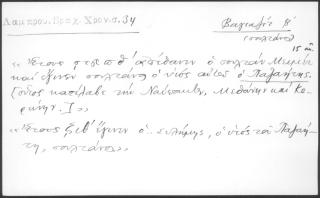 Λάμπρου. Βραχ. Χρον. σ. 34
Βαγιαζήτ Β'
σουλτάνος
15 αἰ.
«Ἔτους ἀπέθανεν ὁ σουλτάν
καὶ ἔγινεν σουλτάνος ὁ υἱὸς αὐτοῦ ὁ Παγιαζίτης.
Οὗτος κατέλαβε τὴν Ναύπακτον, Μεθώνην καὶ Κο-
ρώνην.
«Ἔτους ἔγινεν ὁ Σελήμης, ὁ υἱὸς τοῦ Παγιαζή-
τη, σουλτάνος»